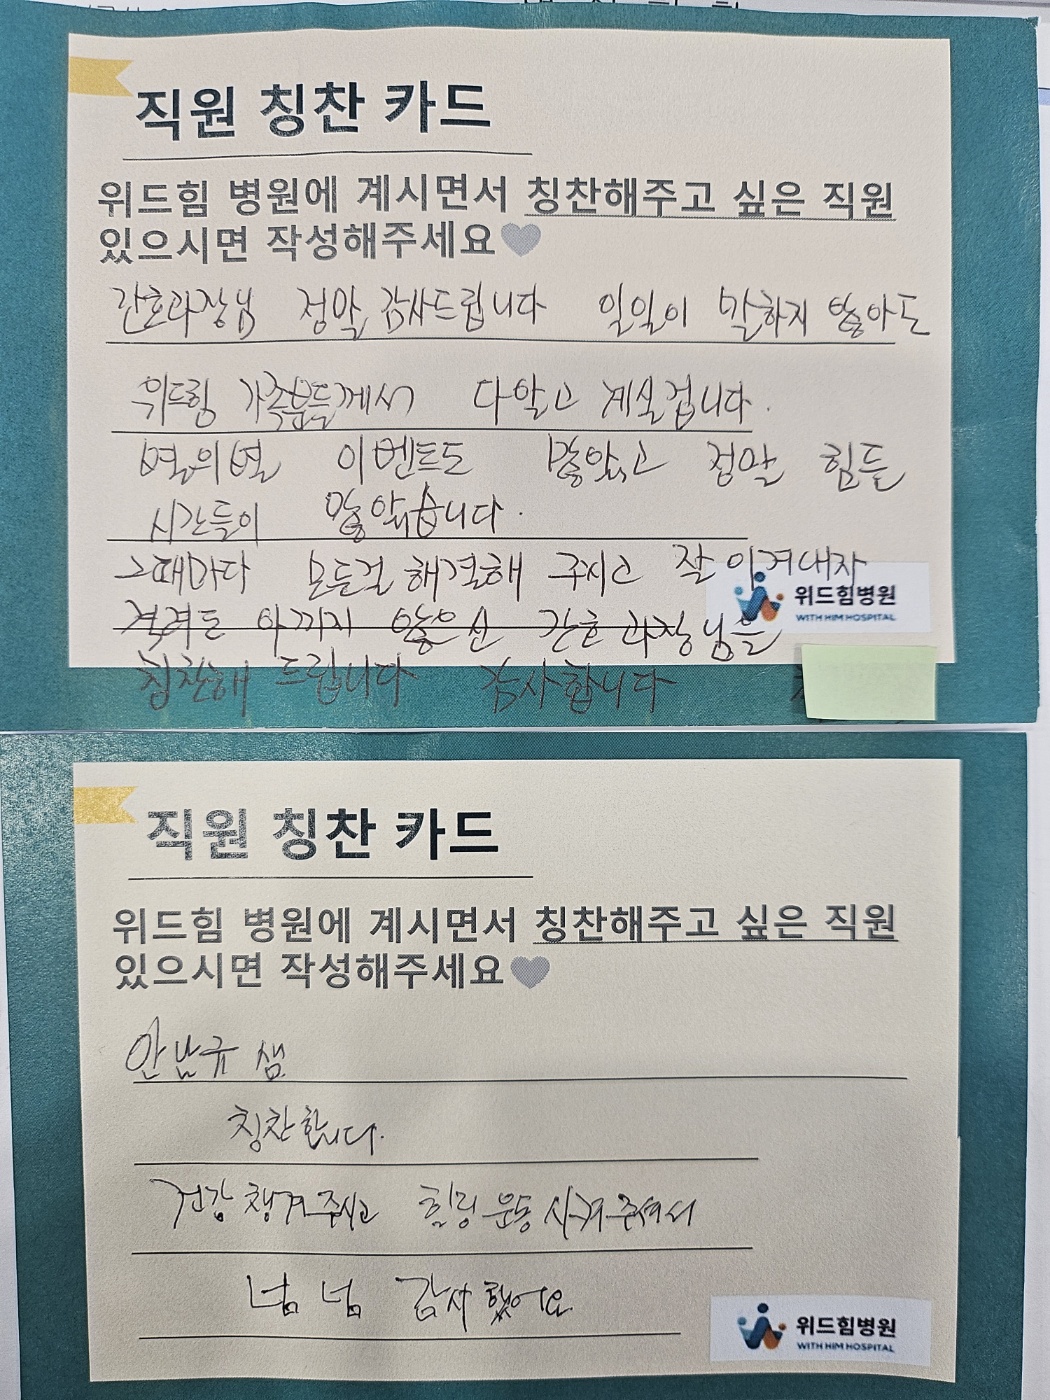 직원 칭찬 카드
위드힘 병원에 계시면서 칭찬해주고 싶은 직원
있으시면 작성해주세요
간호과장님 정말 감사드립니다 일일이 말하지 않아도
위드힘 가족분들께서 다알고 계실겁니다.
별의별 이벤트도 많았고 정말 힘든
시간들이 많았습니다.
그때마다 모든걸 해결해 주시고 잘 이겨내자
격려도 아끼지 않으신 간호과장님을
칭찬해 드립니다 감사합니다
위드힘병원
WITH HIM HOSPITAL
직원 칭찬 카드
위드힘 병원에 계시면서 칭찬해주고 싶은 직원
있으시면 작성해주세요
안남규 샘
칭찬합니다.
건강 챙겨주시고 힐링 운동 시켜주셔서
넘 넘 감사했어요
위드힘병원
WITH HIM HOSPITAL